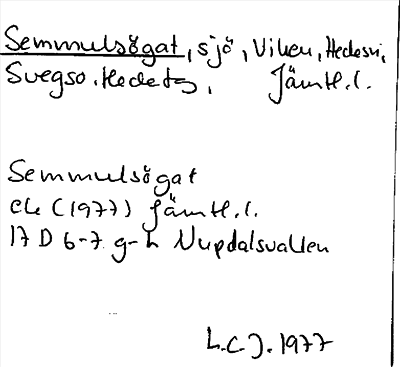 Semmulsögat, sjö, Viken, Hedesn,
Svegso. Hedetg, Jämtl.l.
Semmulsögat
ek (1977) Jämtl.l.
17 D 6-7 g-h Nupdalsvallen
L.C.J. 1977